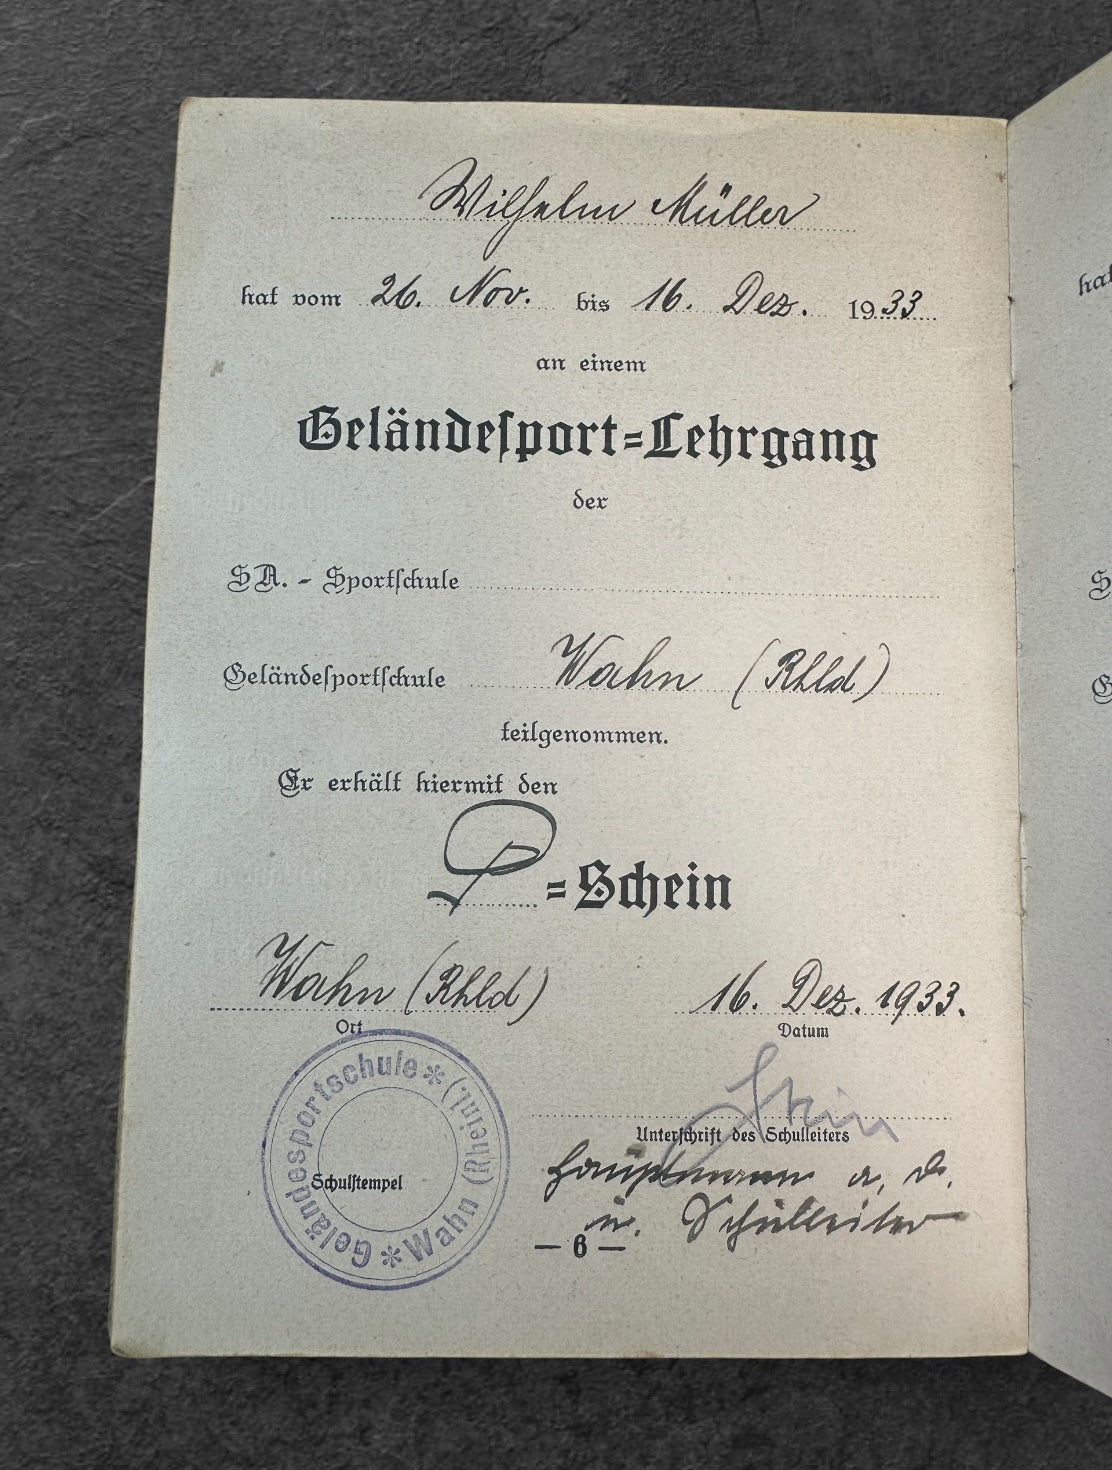 Wilhelm Müller
hat vom 26. Nov. bis 16. Dez. 1933
an einem
Geländesport=Lehrgang
der
SA. - Sportschule
Geländesportschule Wahn (Rhld)
teilgenommen.
Er erhält hiermit den
=Schein
Wahn (Rhld) 16. Dez. 1933.
Ort Datum
Geländesportschule * Wahn (Rheinl.) *
Schulstempel
Unterschrift des Schulleiters
Hauptmann a. D.
u. Schulleiter
— 6 —
hat
S
G